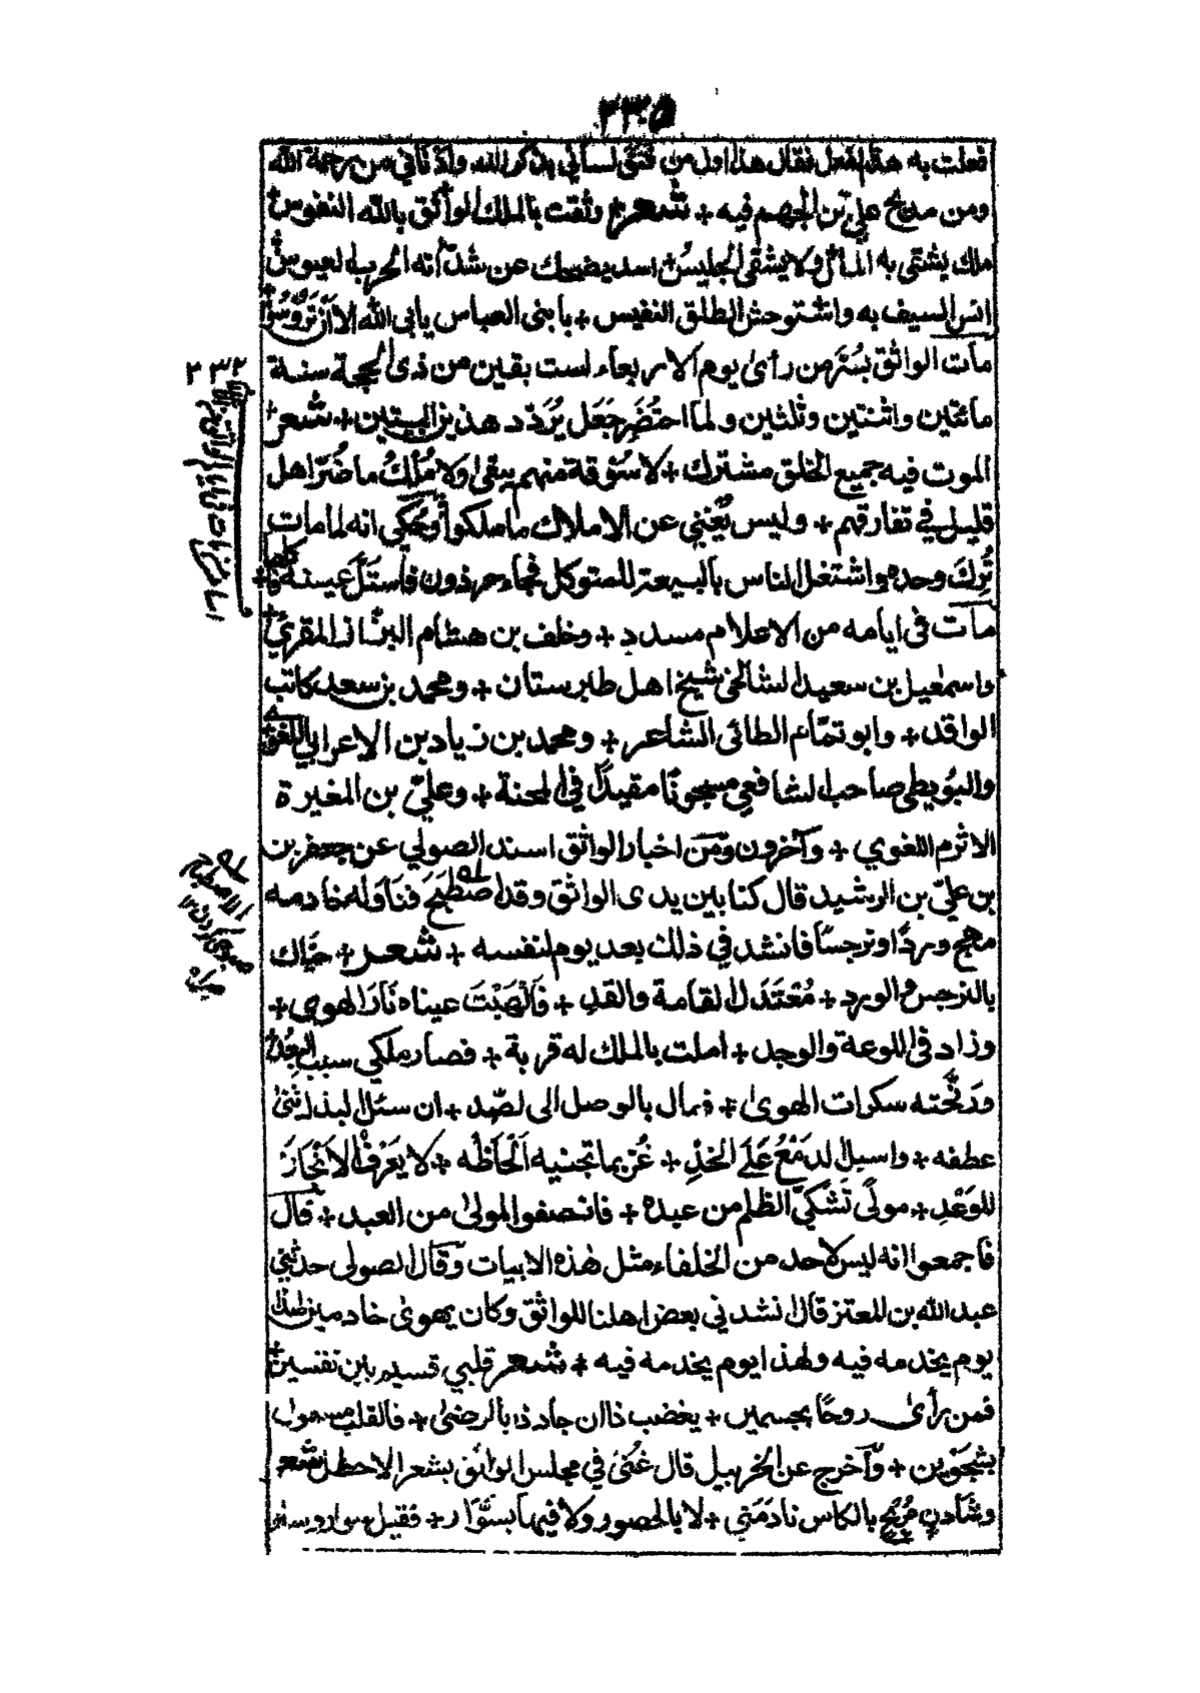 ٢٣٥
فعلت به هذا الفعل فقال هذا اول من فتق لساني بذكر الله وادناني من رحمة الله
ومن مديح علي بن الجهم فيه + شعر + وثقت بالملك الواثق بالله النفوس +
ملك يشقى به المال ولا يشقى الجليس + اسد يضحك عن شداته الحرب العبوس +
انس السيف به واشتوحش الطلق النفيس + يا بنى العباس يابى الله الا ان تروسوا
مات الواثق بسر من رأى يوم الاربعاء لست بقين من ذى الحجة سنة
مائتين واثنتين وثلثين ولما احتضر جعل يردد هذين البيتين + شعر
الموت فيه جميع الخلق مشترك + لا سوقة منهم يبقى ولا ملك ما ضر اهل
قليل في تفارقهم + وليس يغني عن الاملاك ما ملكوا وحكي انه لما مات
ترك وحده واشتغل الناس بالبيعة للمتوكل فجاء حرذون فاستل عينه فاكلها +
مات فى ايامه من الاعلام مسدد + وخلف بن هشام البزار المقري +
واسمعيل بن سعيد الشالخي شيخ اهل طابرستان + ومحمد بن سعد كاتب
الواقد + وابو تمام الطائى الشاعر + ومحمد بن زياد بن الاعرابي اللغوي
والبويطي صاحب الشافعي مسجونا مقيدا في المحنة + وعلي بن المغيرة
الاثرم اللغوي + وآخرون ومن اخبار الواثق اسند الصولي عن جعفر بن
بن علي بن الرشيد قال كنا بين يدى الواثق وقد اصطبح فناوله خادمه
مهج وردا ونرجسا فانشد في ذلك بعد يوم لنفسه + شعر + حياك
بالنرجس والورد + معتدل القامة والقد + فالهبت عيناه نار الهوى +
وزاد فى اللوعة والوجد + املت بالملك له قربة + فصار ملكي سبب البعد +
ورنحته سكرات الهوى + فمال بالوصل الى لصد + ان سئل البذل ثنى
عطفه + واسبل الدمع على الخد + غر بما تجنيه الحاظه + لا يعرف الانجاز
للوعد + مولى تشكى الظلم من عبده + فانصفوا المولى من العبد + قال
فاجمعوا انه ليس لاحد من الخلفاء مثل هذه الابيات وقال الصولى حدثني
عبد الله بن المعتز قال انشدني بعض اهلنا للواثق وكان يهوى خادمين لهذا
يوم يخدمه فيه ولهذا يوم يخدمه فيه + شعر قلبي قسيم بين نفسين +
فمن رأى روحا بجسمين + يغضب ذا ان جاد ذا بالرضى + فالقلب مشغول
بشجوين + وآخرج عن الخرنبيل قال غنى في مجلس الواثق بشعر الاخطل شعر
وشادن مربح بالكاس نادمني + لا بالحصور ولا فيها بسوار + فقيل سوار و
٢٣٢